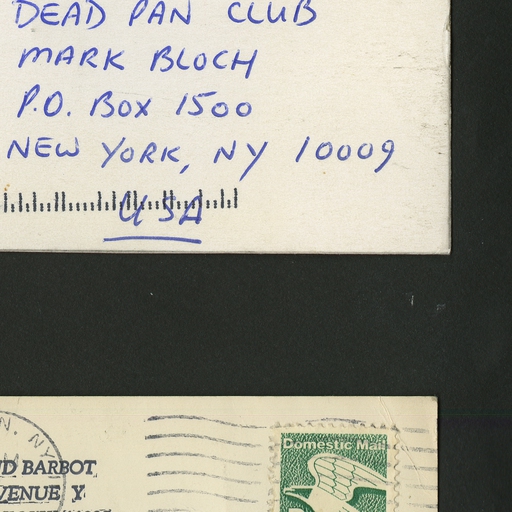 DEAD PAN CLUB
MARK BLOCH
P.O. BOX 1500
NEW YORK, NY 10009
USA
N, NY
D BARBOT
VENUE Y
Domestic Mail